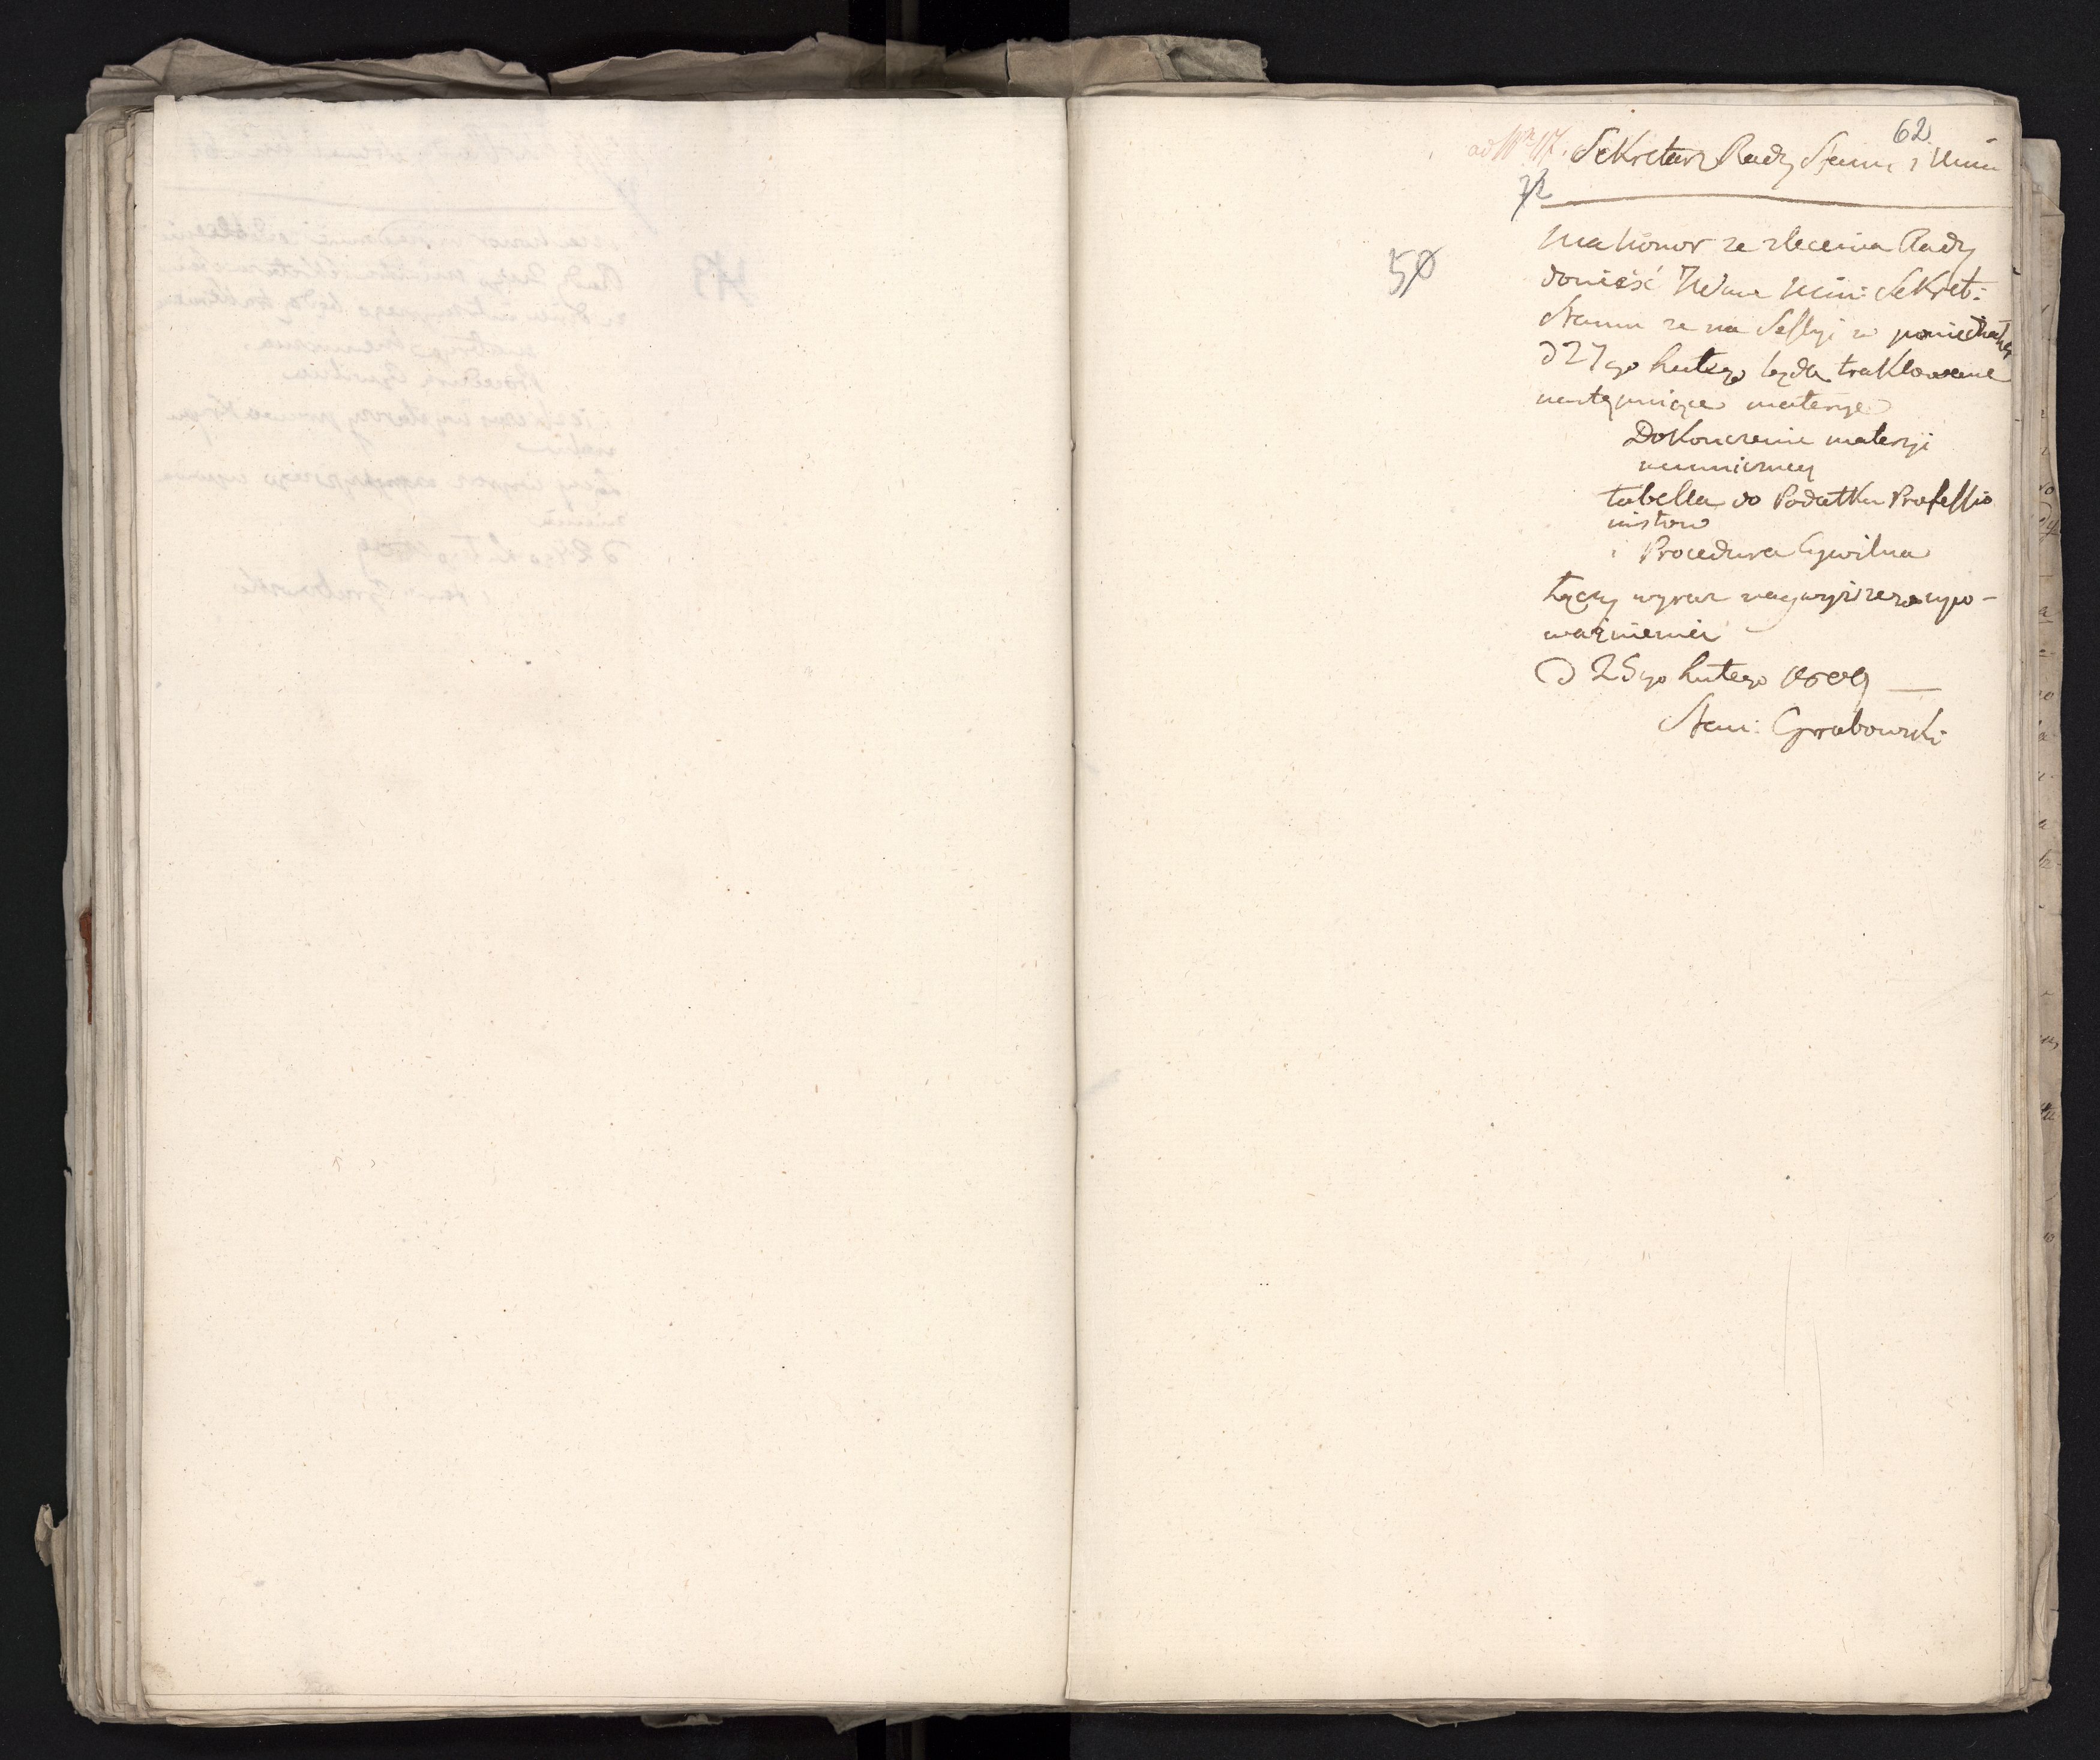 62
ad Nrm 117. Sekretarz Rady Stanu i Mini
72
50
Ma honor ze zlecenia Rady
donieść JWmu Mini: Sekret:
Stanu ze na Sessyi w poniedziałek
D 27go Lutego będą traktowane
następuiące materye
Dokonczenie materyi
menniczney
tabella do Podatku Professio
nistow
i Procedura Cywilna
Łączy wyraz naywyższego upo-
ważnienia
D 25go Lutego 1809 —
Stan: Grabowski